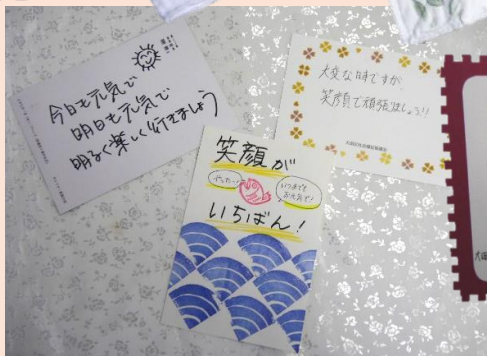 今日も元気で
明日も元気で
明るく楽しく行きましょう
大変な時ですが、
笑顔で頑張りましょう!!
笑顔が
いつまでも
お元気で!
いちばん!